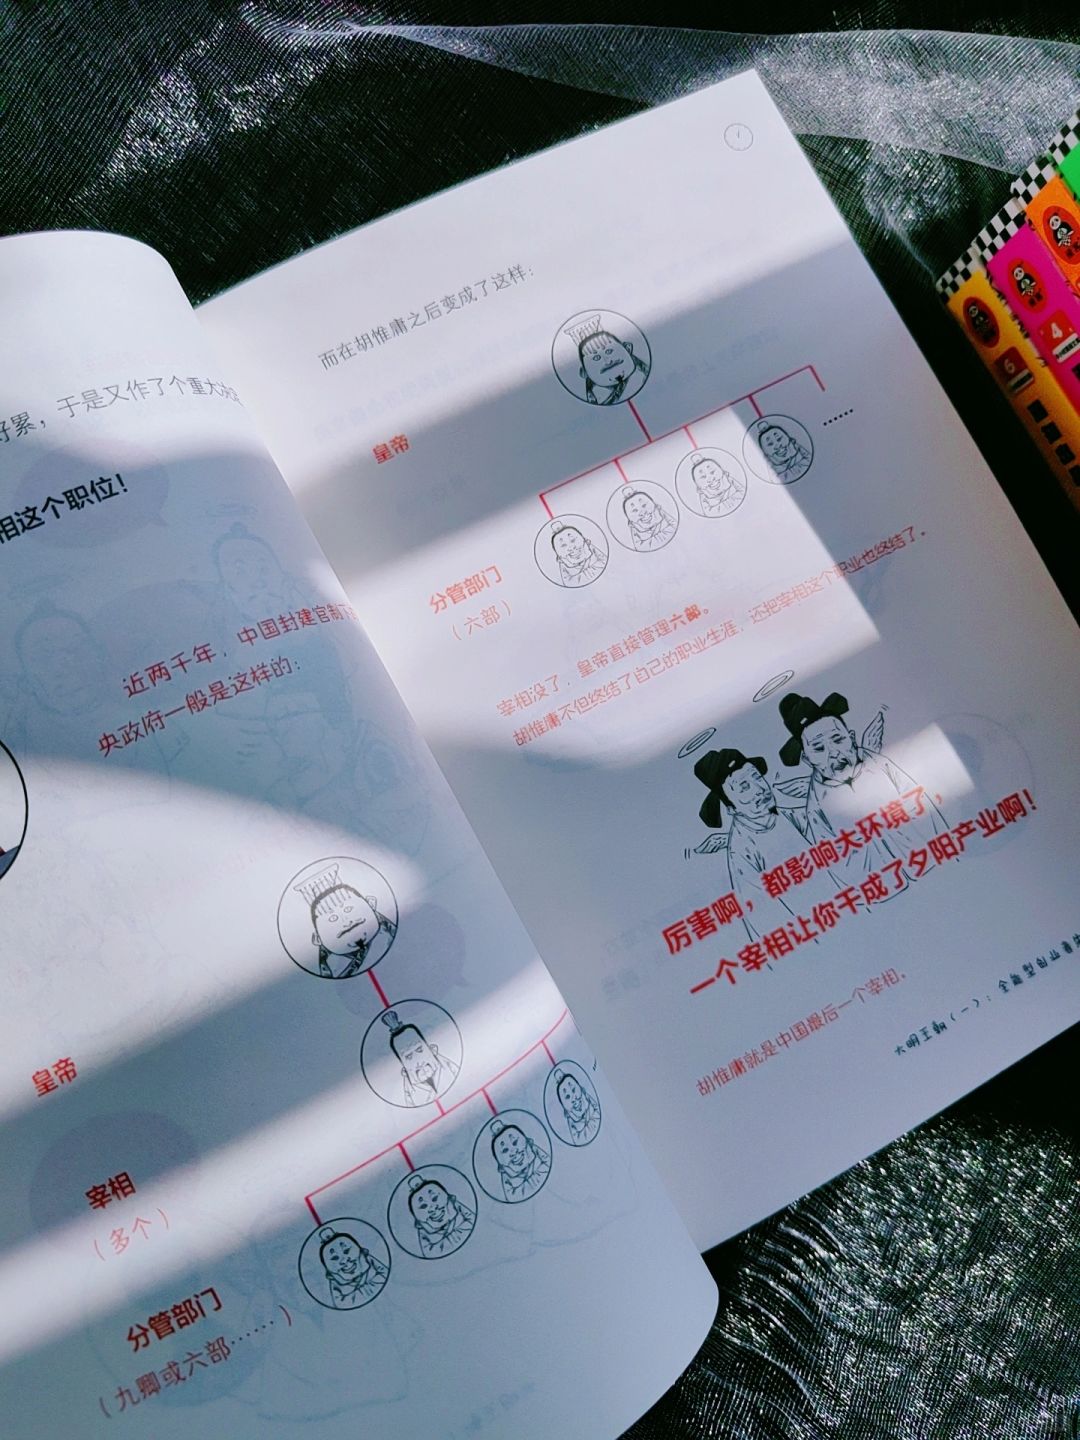 好累，于是又作了个重大决定
相这个职位！
近两千年，中国封建官制下
央政府一般是这样的：
皇帝
宰相
（多个）
分管部门
（九卿或六部……）
而在胡惟庸之后变成了这样：
皇帝
……
分管部门
（六部）
宰相没了，皇帝直接管理六部。
胡惟庸不但终结了自己的职业生涯，还把宰相这个职业也终结了。
厉害啊，都影响大环境了，
一个宰相让你干成了夕阳产业啊！
胡惟庸就是中国最后一个宰相。
大明王朝（一）：全能型创业
6
4